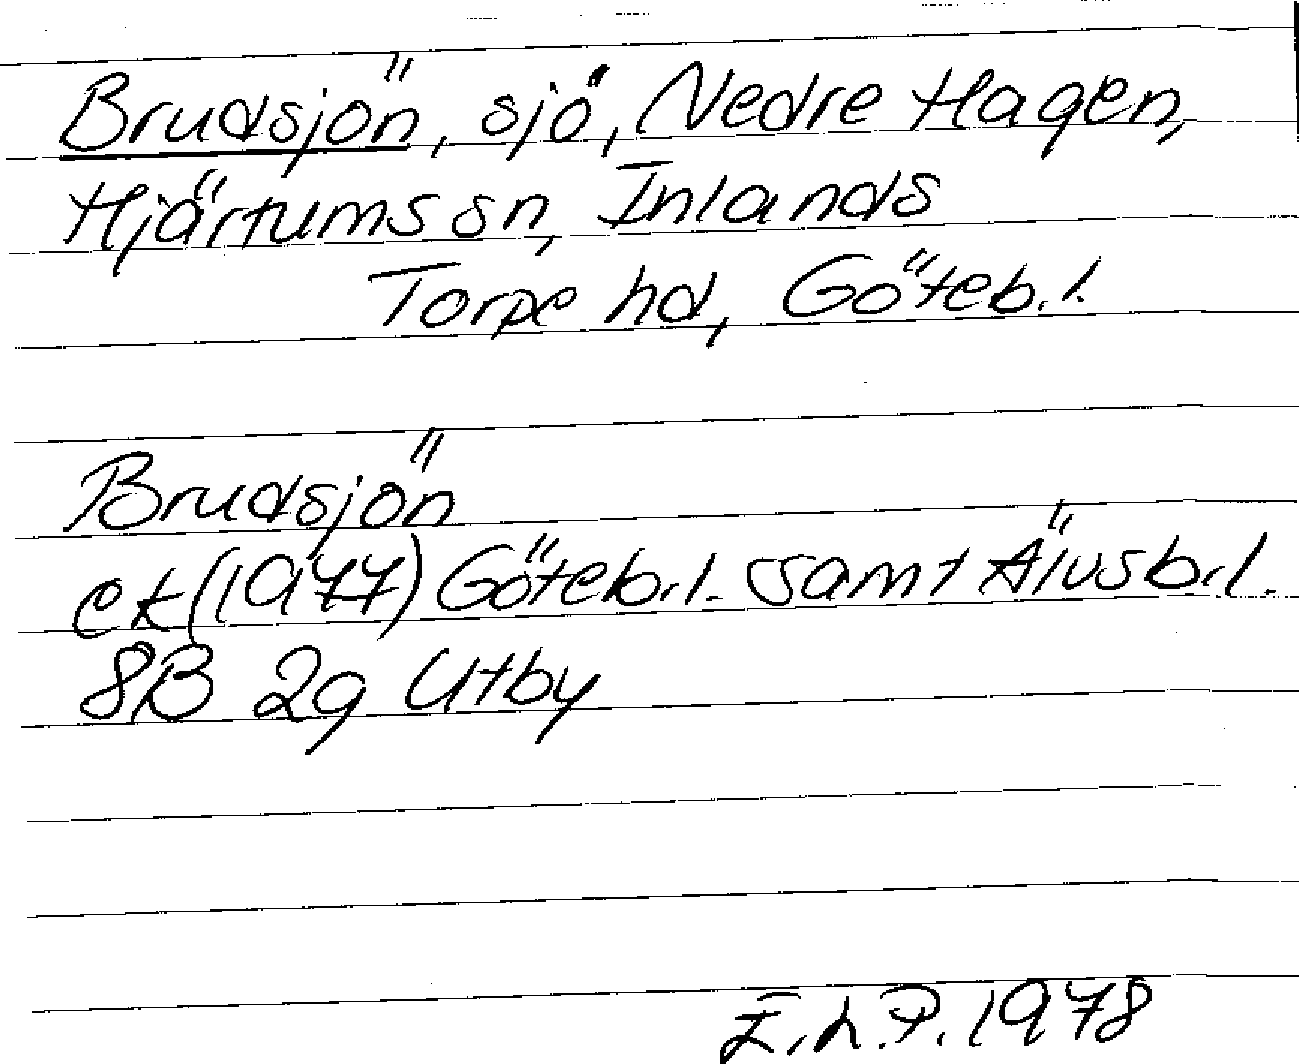 Brudsjön, sjö, Nedre Hagen,
Hjärtums sn, Inlands
Torpe hd, Göteb.l.
Brudsjön
ek (1977) Göteb.l. samt Älvsb.l.
8B 2g Utby
E.L.P. 1978